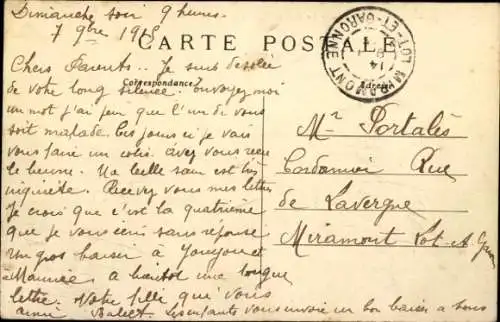 Dimanche soir 9 heures
7 9bre 1918
CARTE POSTALE
Correspondance
Adresse
MIRAMONT
LOT-ET-GARONNE
14
Chers Parents. Je suis désolée
de votre long silence. envoyez moi
un mot j'ai peur que l'un de vous
soit malade. Ces jours ci je vais
vous faire un colis avez vous reçu
le beurre. Ma belle sam est très
inquiète. Recevez vous mes lettres
Je crois que c'est la quatrième
que je vous écris sans réponse
Un gros baiser à Jonjon et
Maurice. a bientôt une longue
lettre. Votre fille qui vous
aime Les enfants vous envoie un bon baiser a tous
Mr Portalès
Cordonnier Rue
de Lavergne
Miramont Lot-et-Gar